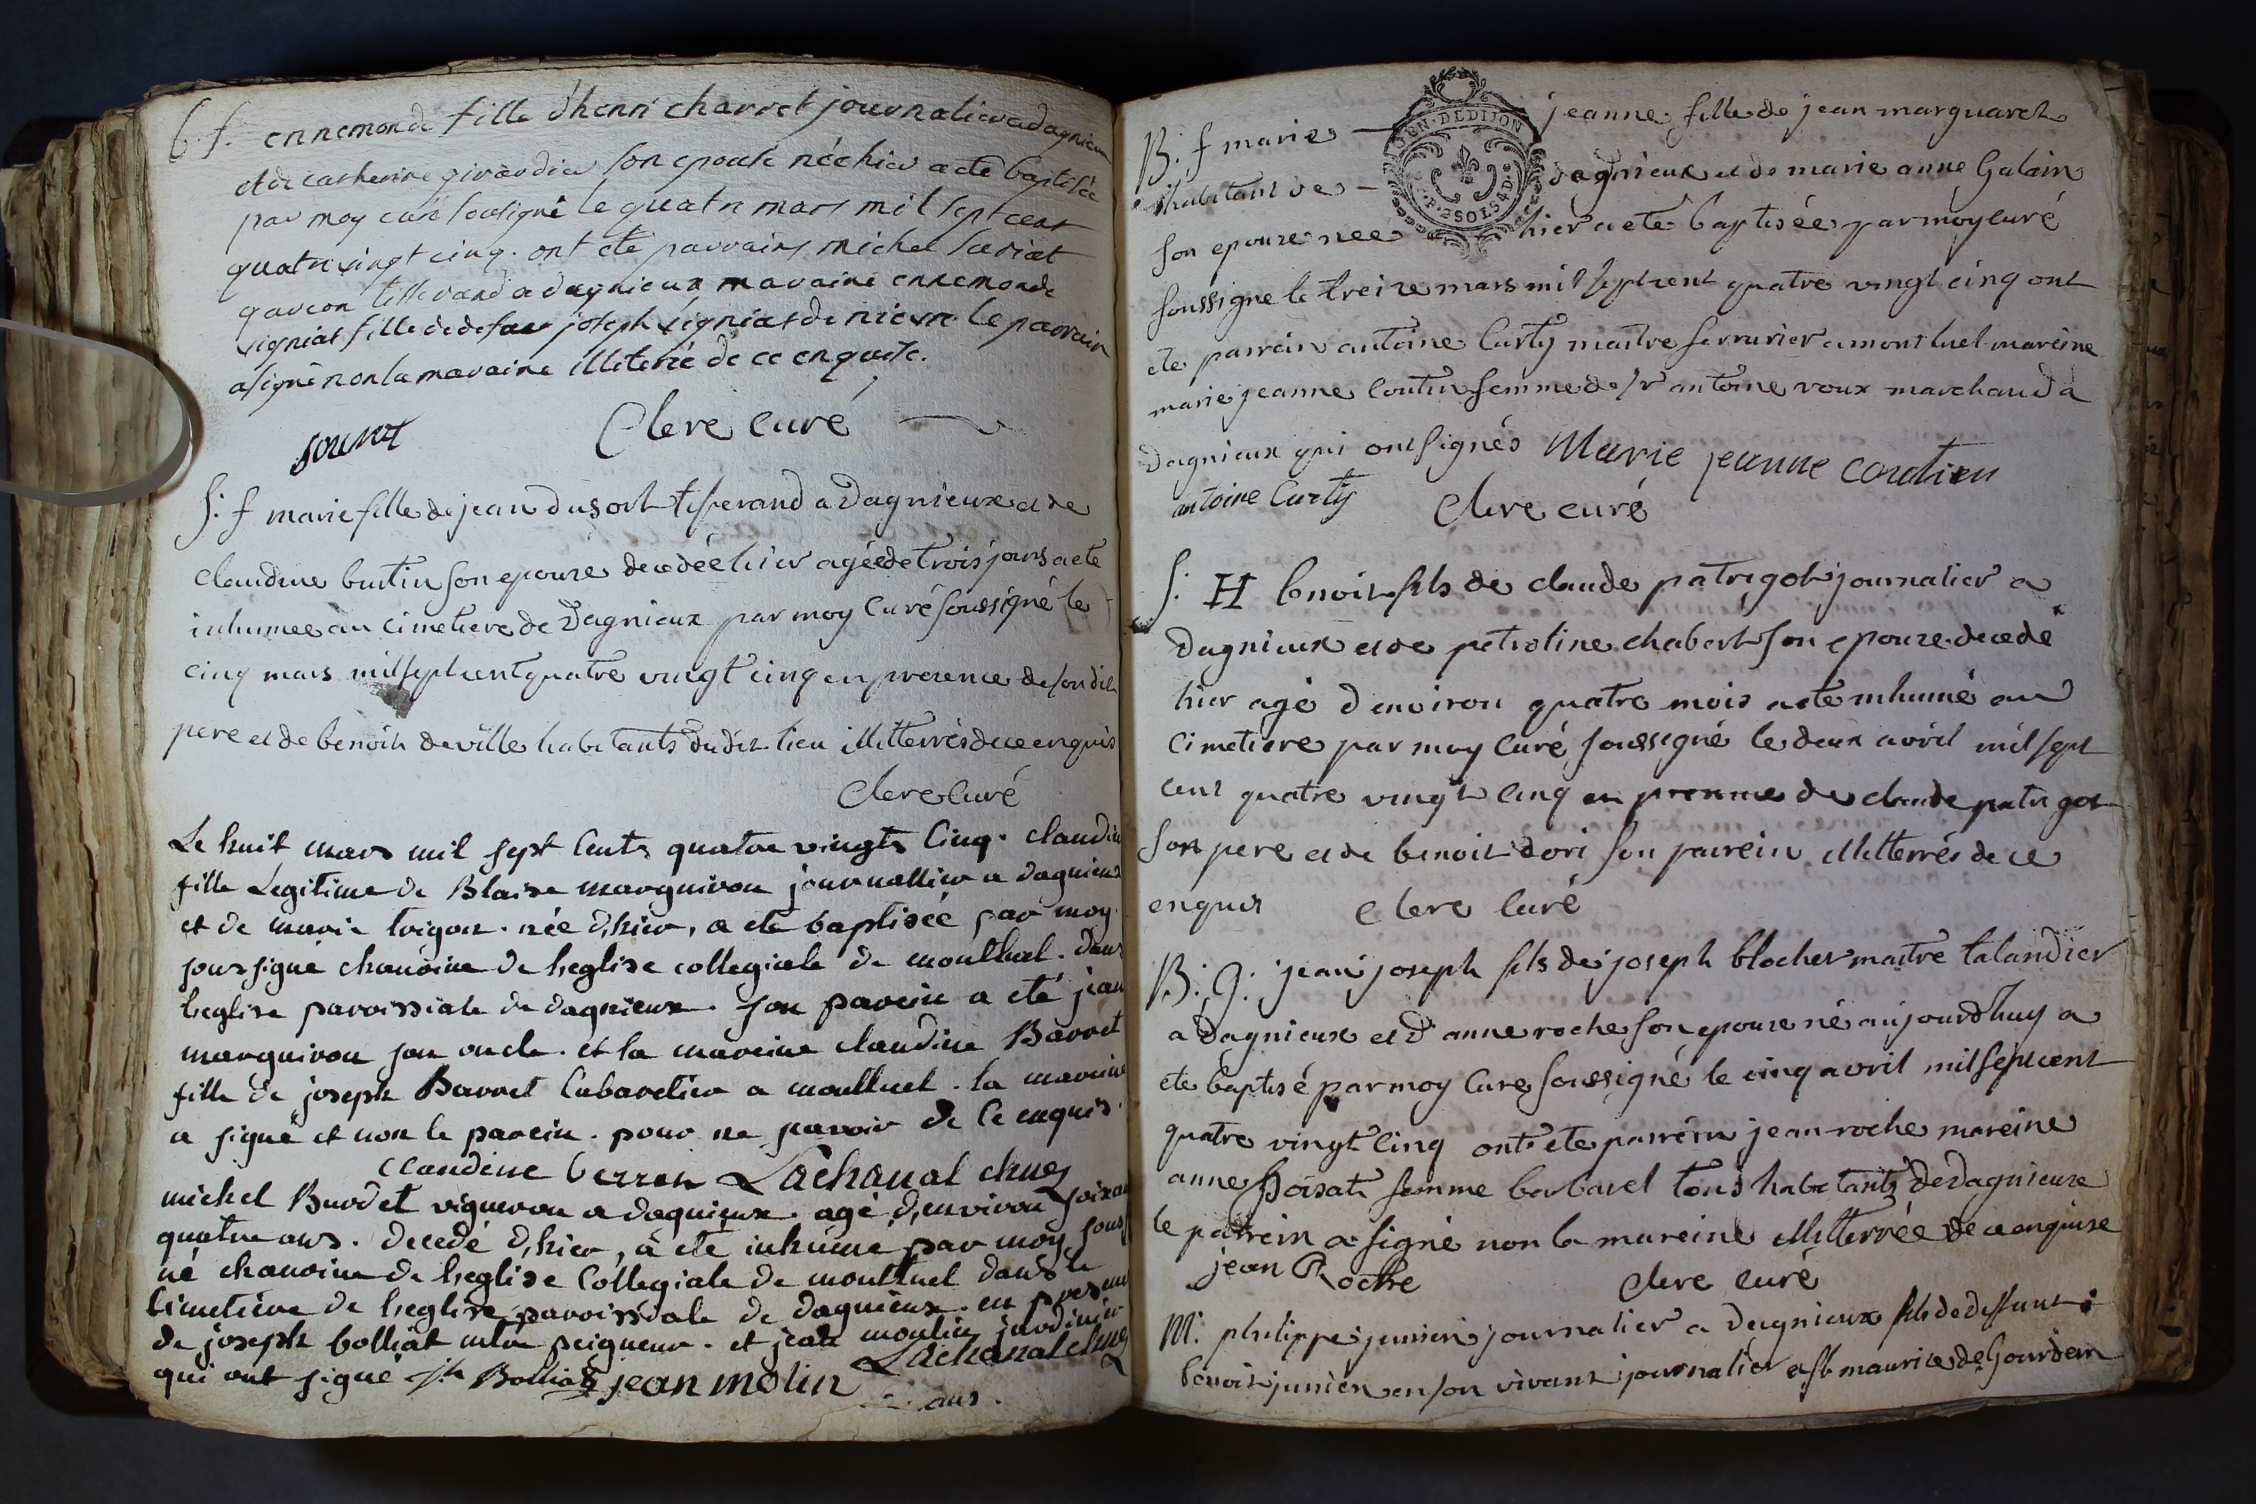 b. f. ennemonde fille d'henri charret journalier a dagnieux
et de catherine girardier son epouse née hier a ete baptisée
par moy curé sousigné le quatre mars mil sept cent
quatre vingt cinq. ont eté parrains michel
garcon tisserand a dagnieux maraine ennemonde
signiat fille de defunt joseph signiat de nievre le parrain
a signé non la maraine illiterée de ce enquise.
Clere curé
S: f marie fille de jean dusort tisserand a Dagnieux et de
claudine butin son epouze decedée hier agée de trois jours a ete
inhumee au cimetiere de Dagnieux par moy Curé soussigné le
cinq mars mil sept cent quatre vingt cinq en presence de son dit
pere et de benoit deville habitants du dit lieu illitterrés de ce enquis
Clere Curé
Le huit mars mil sept Cents quatre vingts Cinq. claudine
fille Legitime de Blaise marguiron journallier a dagnieux
et de marie trigon. née d,hier, a ete baptisée par moy
soussigné chanoine de l'eglise collegiale de montluel. dans
l'eglise paroissiale de dagnieux. son parein a eté jean
marguiron son oncle. et la mareine claudine Barret
fille de joseph Barret Cabaretier a montluel. la mareine
a signé et non le parein. pour ne savoir de Ce enquis.
claudine berret Lachanal chne
michel Burdet vigneron a dagnieux. agé d,environ soixante
quatre ans. decedé d,hier, a ete inhumé par moy sous
né chanoine de l'eglise Collegiale de montluel dans le
Cimetiere de l'eglise paroissiale de dagnieux. en presence
de joseph bolliat mtre peigneur. et jean moulin jardinier
qui ont signé jh Bolliat jean molin Lachanal chne
ans.
B: f marie jeanne fille de jean marguaret
habitant de dagnieux et de marie anne Galain
son epouze née hier a ete baptisée par moy curé
soussigné le treize mars mil sept cent quatre vingt cinq ont
ete parrein antoine Curty maitre serrurier a montluel mareine
marie jeanne Coutin femme de sr antoine roux marchand a
Dagnieux qui ont signés Marie jeanne coutien
antoine Curty Clere curé
JEN. DEDIJON
P. 2 SOLS 4 D.
S: H benoit fils de claude patrigot journalier a
Dagnieux et de petroline chabert son epouze decedé
hier agé d'environ quatre mois a ete inhumé au
Cimetiere par moy Curé soussigné le deux avril mil sept
cent quatre vingt cinq en presence de claude patrigot
son pere et de benoit dori son parrein illitterrés de ce
enquis Clere Curé
B: G: jean joseph fils de joseph blocher maitre talandier
a Dagnieux et d'anne roche son epouze né aujourdhuy a
ete baptisé par moy Curé soussigné le cinq avril mil sept cent
quatre vingt cinq ont ete parrein jean roche mareine
anne poisat femme barbarel tous habitants de dagnieux
le parrein a signé non la mareine illitterrée de ce enquise
jean Roche Clere curé
M: philippe junien journalier a Dagnieux fils de deffunt
benoit junien en son vivant journalier a St maurice de Gourdan